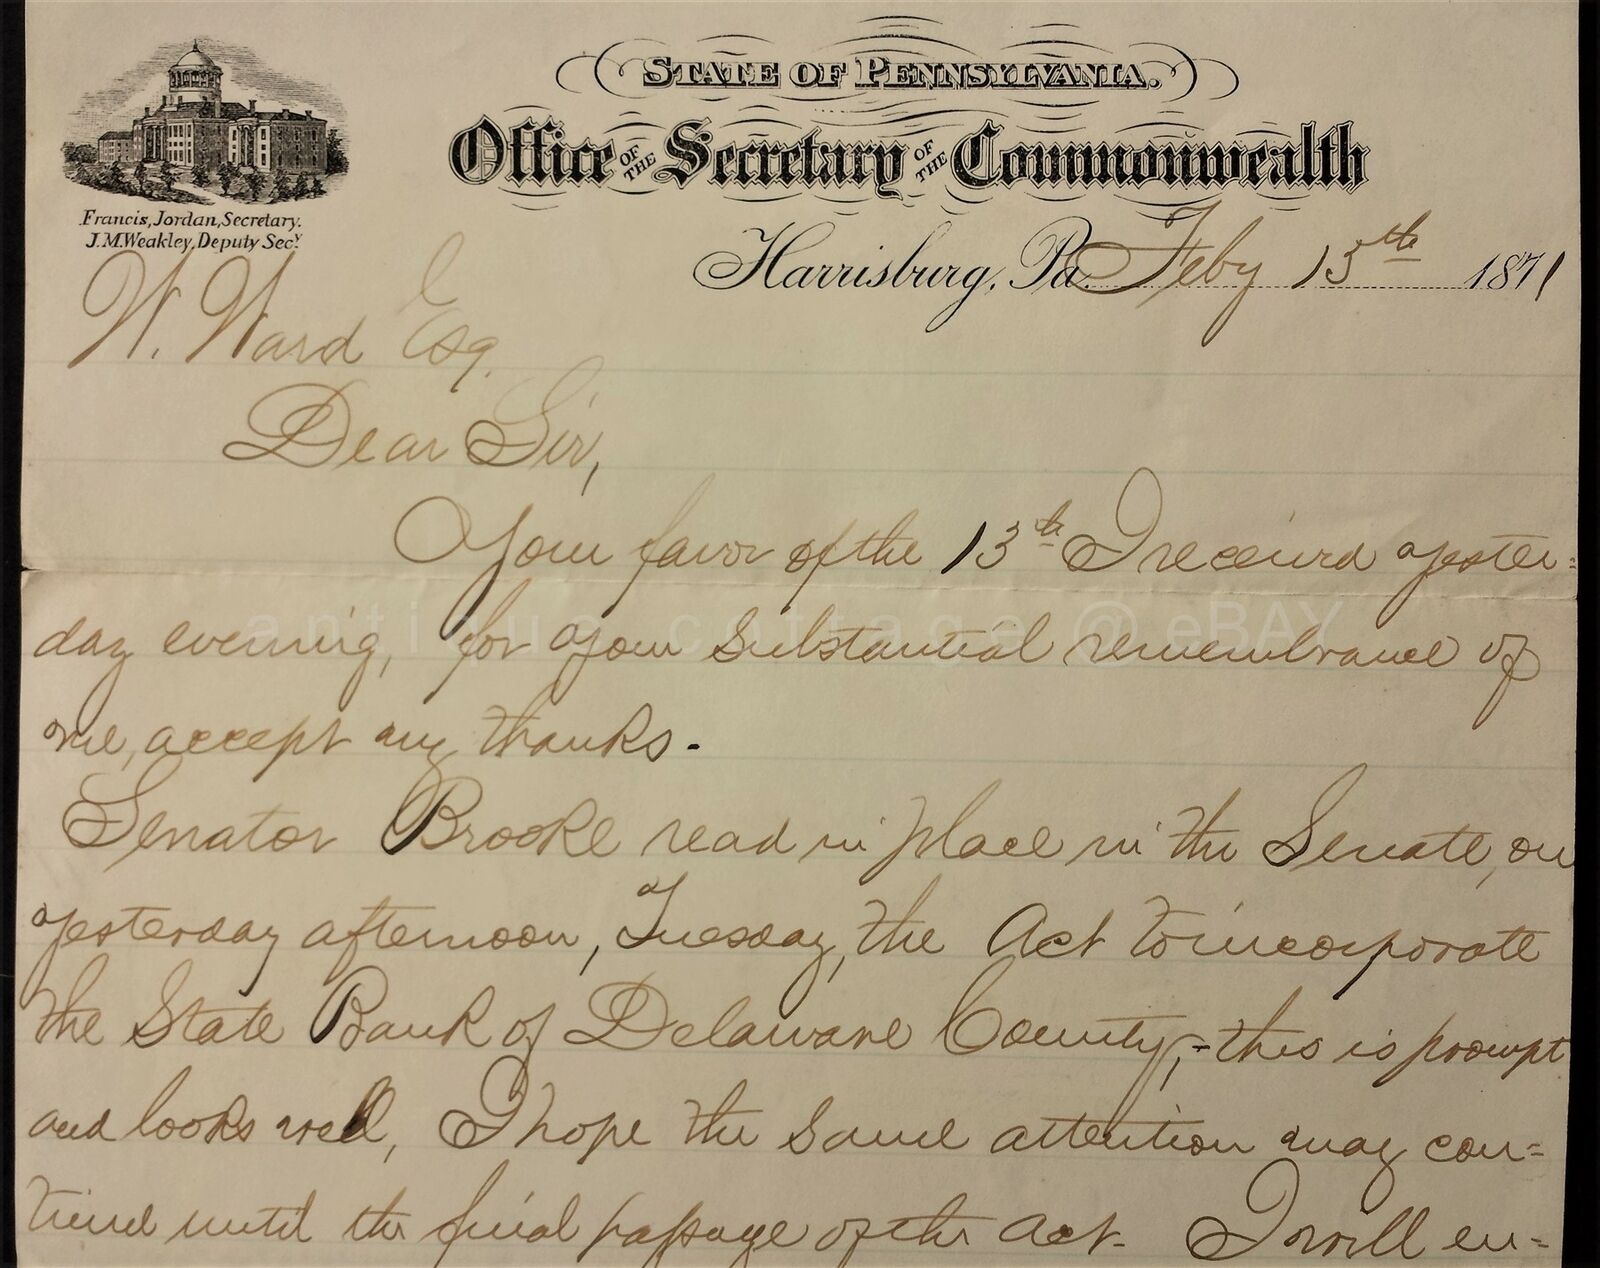 STATE OF PENNSYLVANIA.
Office OF THE Secretary OF THE Commonwealth
Francis, Jordan, Secretary.
J. M. Weakley, Deputy Secy.
Harrisburg, Pa. Feby 15th 1871
W. Ward Esq.
Dear Sir,
Your favor of the 13th I received yester=
day evening, for your substantial remembrance of
me, accept my thanks.
Senator Brooke read in place in the Senate, on
yesterday afternoon, Tuesday, the Act to incorporate
the State Bank of Delaware County,- this is prompt
and looks well, I hope the same attention may con=
tinue until the final passage of the act. I will en=
antique cottage @ eBAY